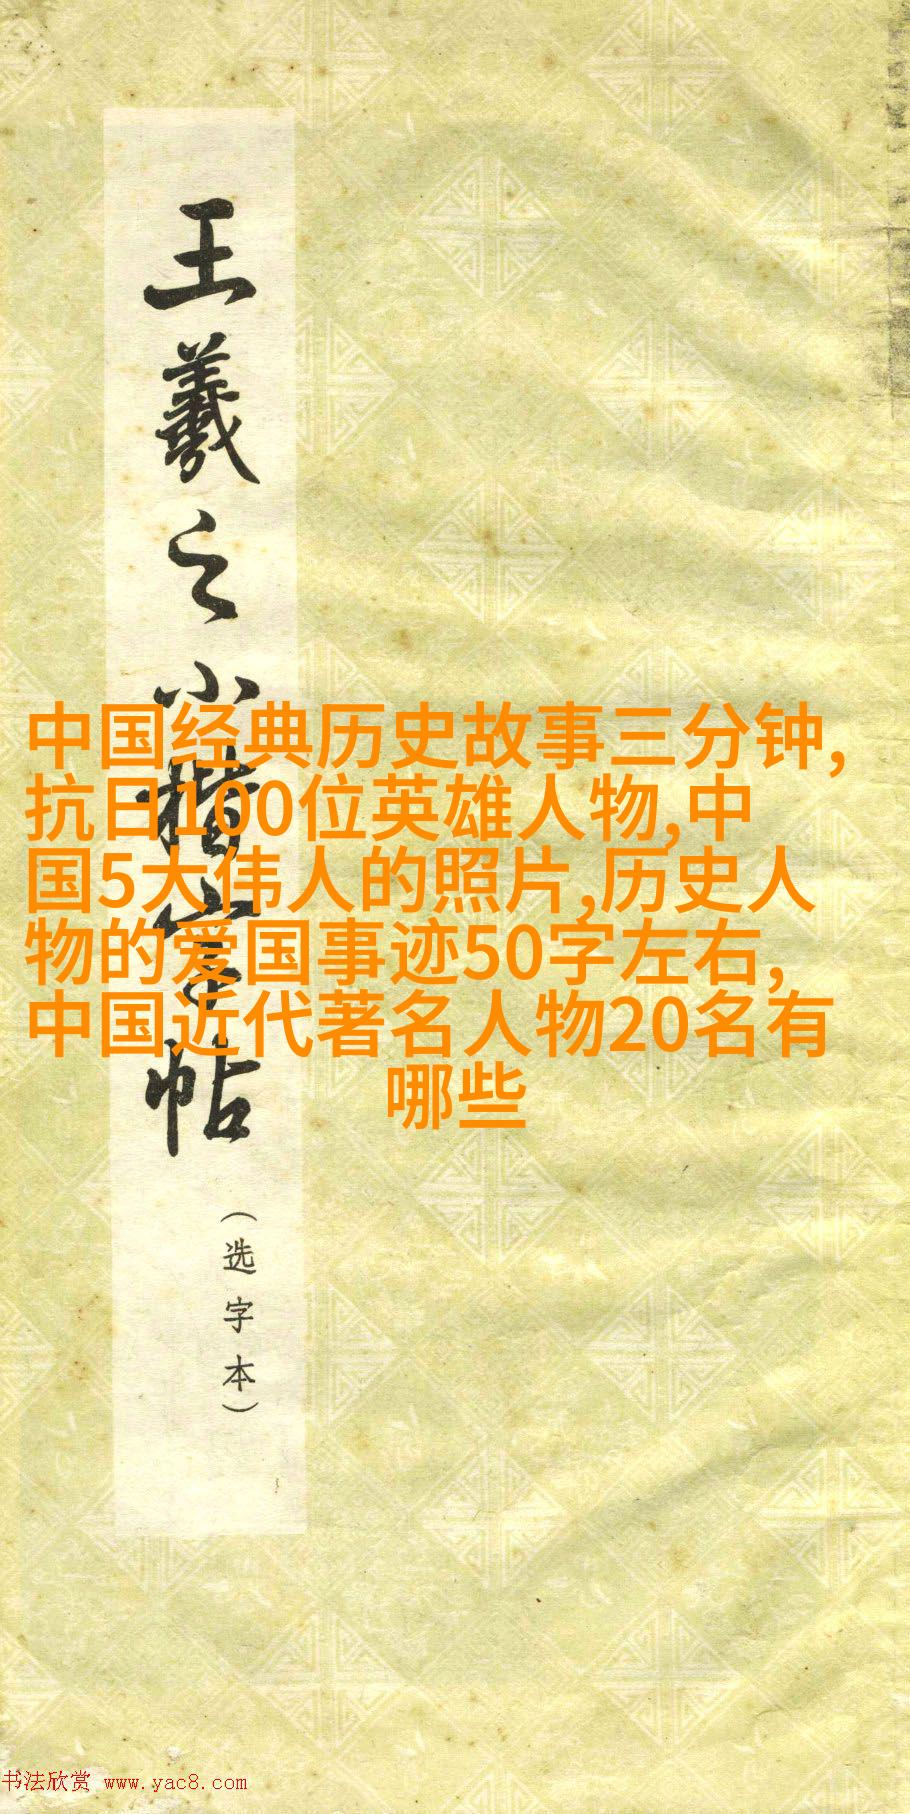 王羲之小楷字帖
(选字本)
中国经典历史故事三分钟,
抗日100位英雄人物,中
国5大伟人的照片,历史人
物的爱国事迹50字左右,
中国近代著名人物20名有
哪些
书法欣赏 www.yac8.com